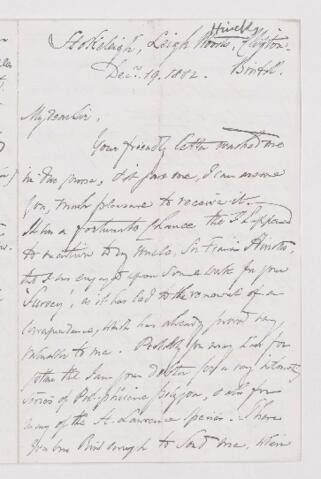 Hincks
Stokeleigh, Leigh Woods, Clifton.
Decr. 19. 1882. Bristol.
My dear Sir,
Your friendly letter reached me
in due course, & it gave me, I can assure
you, much pleasure to receive it.
It was a fortunate chance that I happened
to mention to my
that I was engaged upon some work for your
Survey, as it has led to the renewal of a
correspondence, which has already proved very
valuable to me. Probably you may
that I am your debtor for a very interesting
series of Polyzoa, & also for
many of the St. Lawrence species. I have
been enough to send me, when